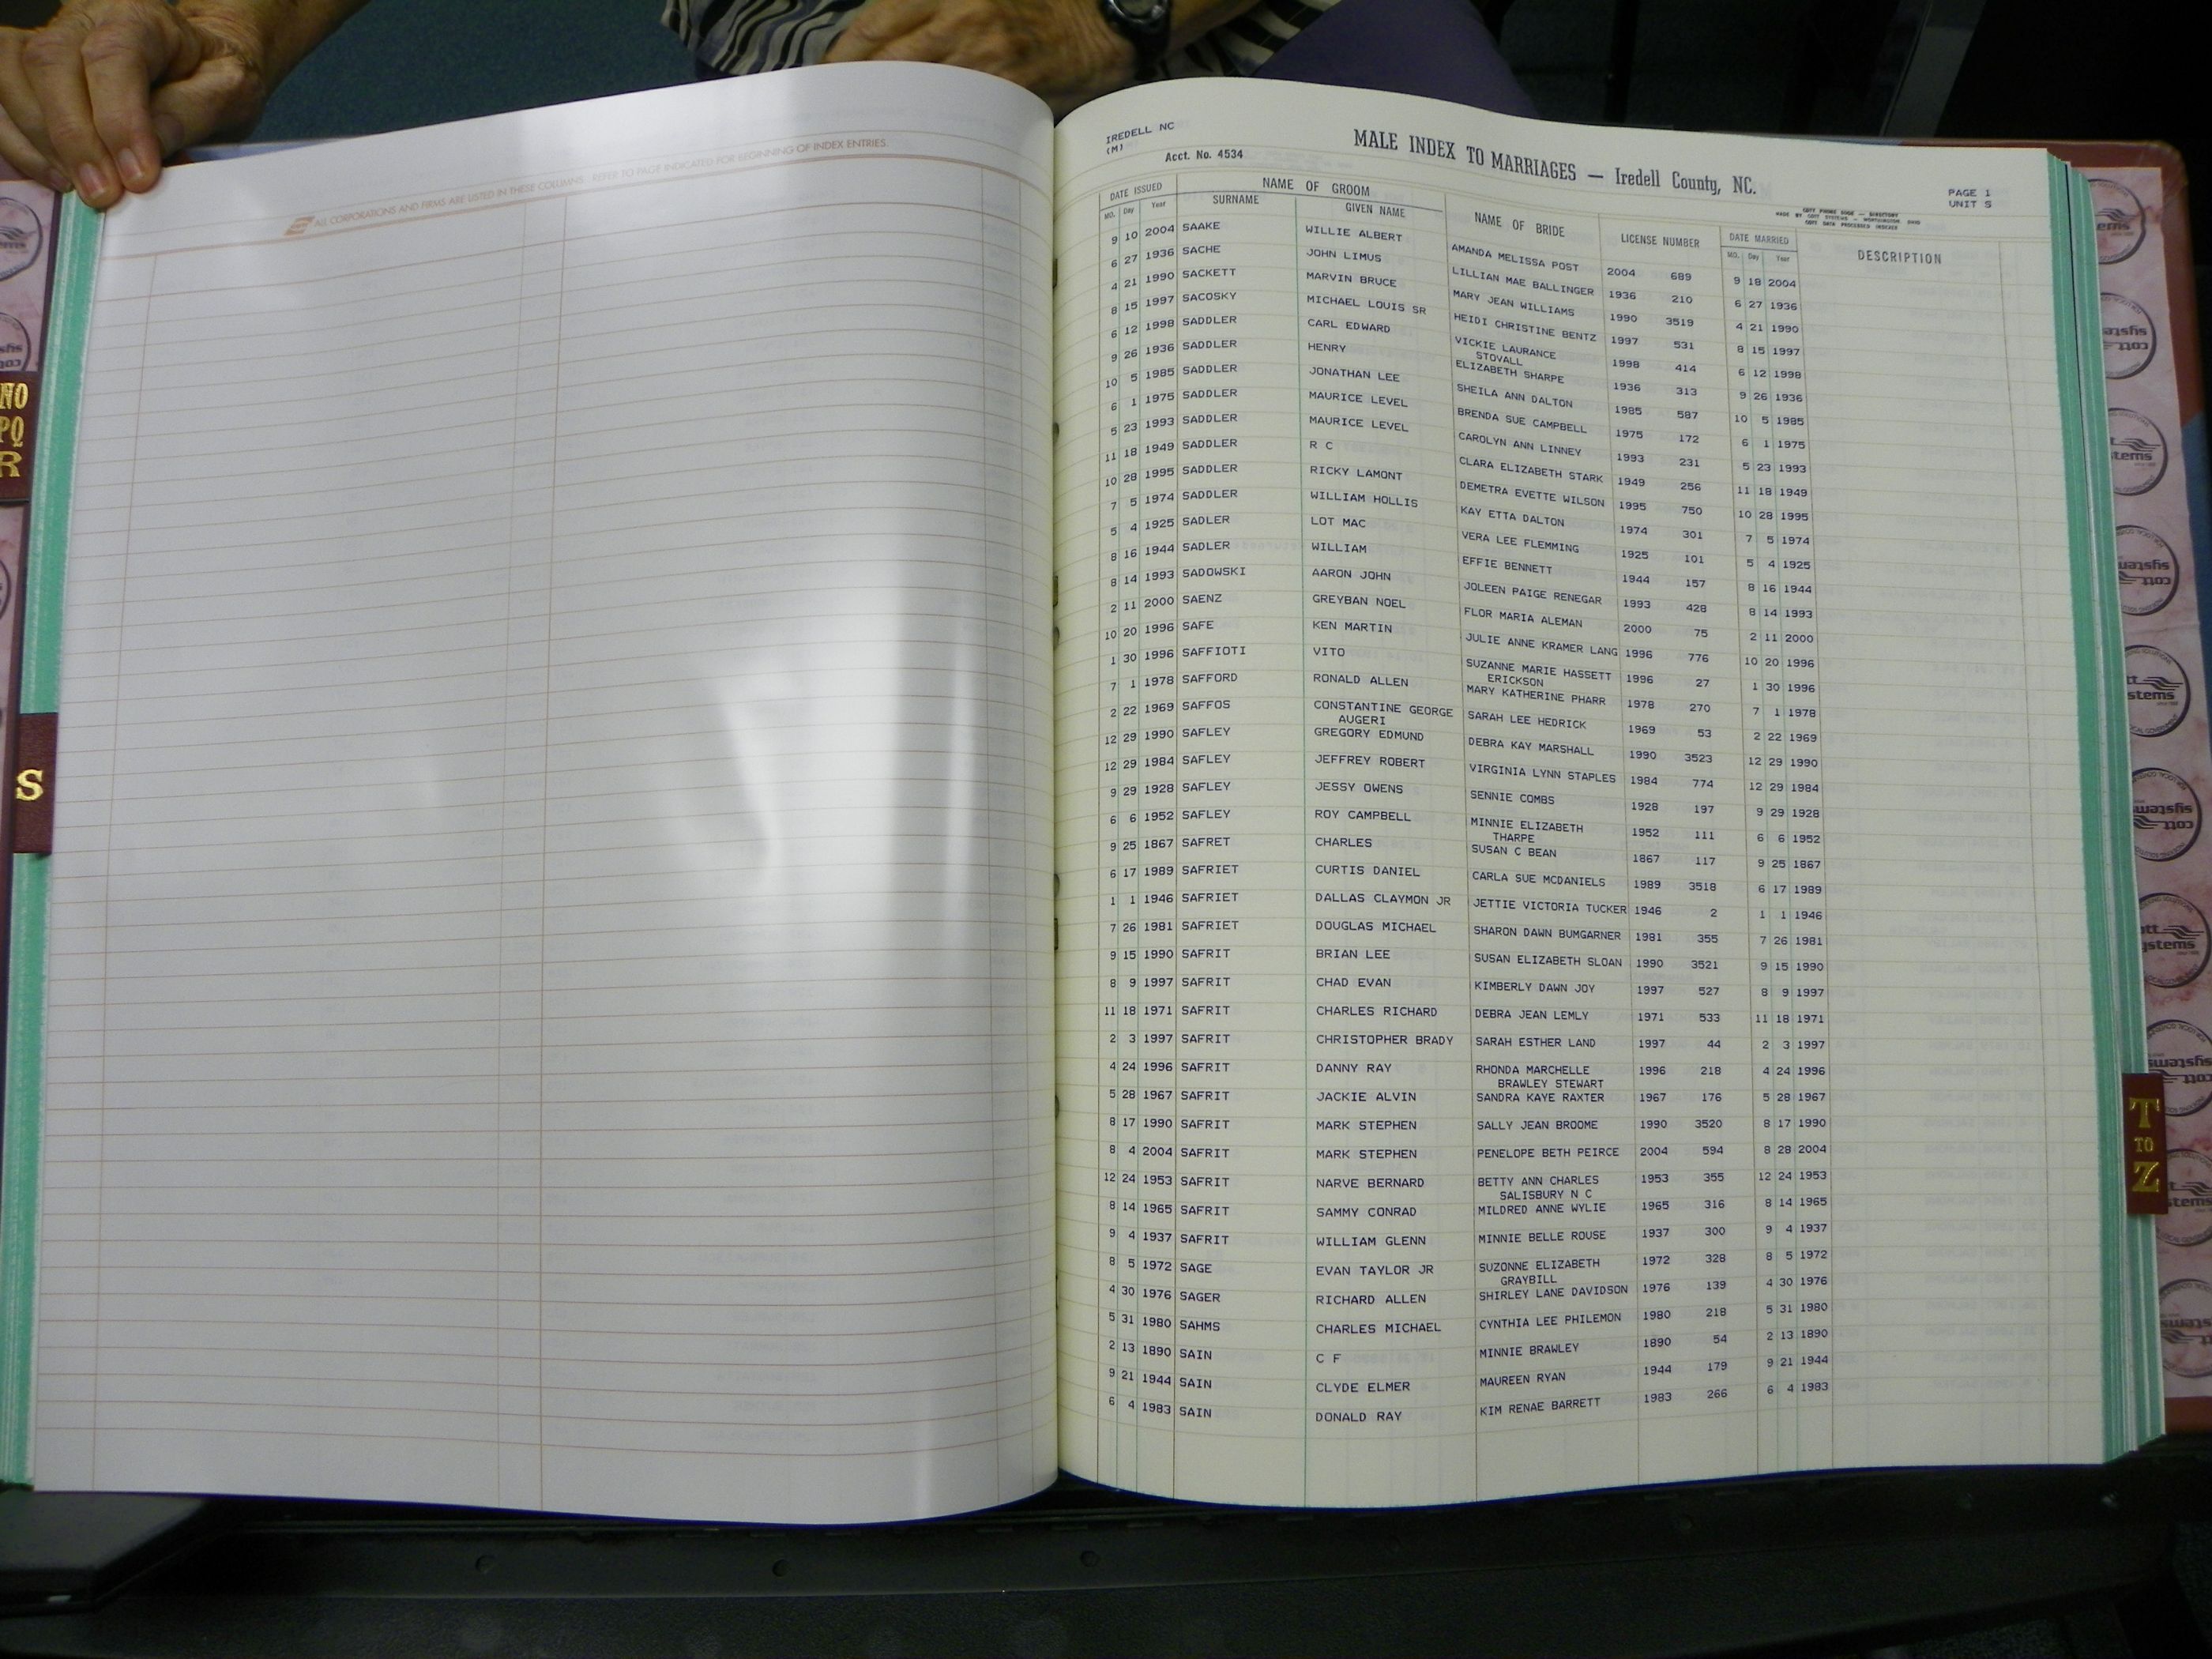 ALL CORPORATIONS AND FIRMS ARE LISTED IN THESE COLUMNS. REFER TO PAGE INDICATED FOR BEGINNING OF INDEX ENTRIES
NO
PQ
R
S
IREDELL NC
(M)
Acct. No. 4534
MALE INDEX TO MARRIAGES — Iredell County, NC.
PAGE 1
UNIT S
COTT PHONE BOOK — DIRECTORY
MADE BY COTT SYSTEMS — WORTHINGTON OHIO
COTT DATA PROCESSED INDEXES
DATE ISSUED NAME OF GROOM NAME OF BRIDE LICENSE NUMBER DATE MARRIED DESCRIPTION
MO. Day Year SURNAME GIVEN NAME MO. Day Year
9 10 2004 SAAKE WILLIE ALBERT AMANDA MELISSA POST 2004 689 9 18 2004
6 27 1936 SACHE JOHN LIMUS LILLIAN MAE BALLINGER 1936 210 6 27 1936
4 21 1990 SACKETT MARVIN BRUCE MARY JEAN WILLIAMS 1990 3519 4 21 1990
8 15 1997 SACOSKY MICHAEL LOUIS SR HEIDI CHRISTINE BENTZ 1997 531 8 15 1997
6 12 1998 SADDLER CARL EDWARD VICKIE LAURANCE 1998 414 6 12 1998
STOVALL
9 26 1936 SADDLER HENRY ELIZABETH SHARPE 1936 313 9 26 1936
10 5 1985 SADDLER JONATHAN LEE SHEILA ANN DALTON 1985 587 10 5 1985
6 1 1975 SADDLER MAURICE LEVEL BRENDA SUE CAMPBELL 1975 172 6 1 1975
5 23 1993 SADDLER MAURICE LEVEL CAROLYN ANN LINNEY 1993 231 5 23 1993
11 18 1949 SADDLER R C CLARA ELIZABETH STARK 1949 256 11 18 1949
10 28 1995 SADDLER RICKY LAMONT DEMETRA EVETTE WILSON 1995 750 10 28 1995
7 5 1974 SADDLER WILLIAM HOLLIS KAY ETTA DALTON 1974 301 7 5 1974
5 4 1925 SADLER LOT MAC VERA LEE FLEMMING 1925 101 5 4 1925
8 16 1944 SADLER WILLIAM EFFIE BENNETT 1944 157 8 16 1944
8 14 1993 SADOWSKI AARON JOHN JOLEEN PAIGE RENEGAR 1993 428 8 14 1993
2 11 2000 SAENZ GREYBAN NOEL FLOR MARIA ALEMAN 2000 75 2 11 2000
10 20 1996 SAFE KEN MARTIN JULIE ANNE KRAMER LANG 1996 776 10 20 1996
1 30 1996 SAFFIOTI VITO SUZANNE MARIE HASSETT 1996 27 1 30 1996
ERICKSON
7 1 1978 SAFFORD RONALD ALLEN MARY KATHERINE PHARR 1978 270 7 1 1978
2 22 1969 SAFFOS CONSTANTINE GEORGE SARAH LEE HEDRICK 1969 53 2 22 1969
AUGERI
12 29 1990 SAFLEY GREGORY EDMUND DEBRA KAY MARSHALL 1990 3523 12 29 1990
12 29 1984 SAFLEY JEFFREY ROBERT VIRGINIA LYNN STAPLES 1984 774 12 29 1984
9 29 1928 SAFLEY JESSY OWENS SENNIE COMBS 1928 197 9 29 1928
6 6 1952 SAFLEY ROY CAMPBELL MINNIE ELIZABETH 1952 111 6 6 1952
THARPE
9 25 1867 SAFRET CHARLES SUSAN C BEAN 1867 117 9 25 1867
6 17 1989 SAFRIET CURTIS DANIEL CARLA SUE MCDANIELS 1989 3518 6 17 1989
1 1 1946 SAFRIET DALLAS CLAYMON JR JETTIE VICTORIA TUCKER 1946 2 1 1 1946
7 26 1981 SAFRIET DOUGLAS MICHAEL SHARON DAWN BUMGARNER 1981 355 7 26 1981
9 15 1990 SAFRIT BRIAN LEE SUSAN ELIZABETH SLOAN 1990 3521 9 15 1990
8 9 1997 SAFRIT CHAD EVAN KIMBERLY DAWN JOY 1997 527 8 9 1997
11 18 1971 SAFRIT CHARLES RICHARD DEBRA JEAN LEMLY 1971 533 11 18 1971
2 3 1997 SAFRIT CHRISTOPHER BRADY SARAH ESTHER LAND 1997 44 2 3 1997
4 24 1996 SAFRIT DANNY RAY RHONDA MARCHELLE 1996 218 4 24 1996
BRAWLEY STEWART
5 28 1967 SAFRIT JACKIE ALVIN SANDRA KAYE RAXTER 1967 176 5 28 1967
8 17 1990 SAFRIT MARK STEPHEN SALLY JEAN BROOME 1990 3520 8 17 1990
8 4 2004 SAFRIT MARK STEPHEN PENELOPE BETH PEIRCE 2004 594 8 28 2004
12 24 1953 SAFRIT NARVE BERNARD BETTY ANN CHARLES 1953 355 12 24 1953
SALISBURY N C
8 14 1965 SAFRIT SAMMY CONRAD MILDRED ANNE WYLIE 1965 316 8 14 1965
9 4 1937 SAFRIT WILLIAM GLENN MINNIE BELLE ROUSE 1937 300 9 4 1937
8 5 1972 SAGE EVAN TAYLOR JR SUZONNE ELIZABETH 1972 328 8 5 1972
GRAYBILL
4 30 1976 SAGER RICHARD ALLEN SHIRLEY LANE DAVIDSON 1976 139 4 30 1976
5 31 1980 SAHMS CHARLES MICHAEL CYNTHIA LEE PHILEMON 1980 218 5 31 1980
2 13 1890 SAIN C F MINNIE BRAWLEY 1890 54 2 13 1890
9 21 1944 SAIN CLYDE ELMER MAUREEN RYAN 1944 179 9 21 1944
6 4 1983 SAIN DONALD RAY KIM RENAE BARRETT 1983 266 6 4 1983
T
TO
Z